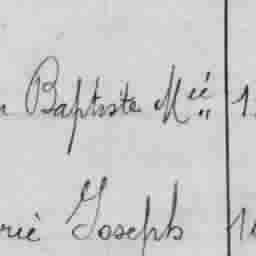 Baptiste Mié 1
rie Joseph 1